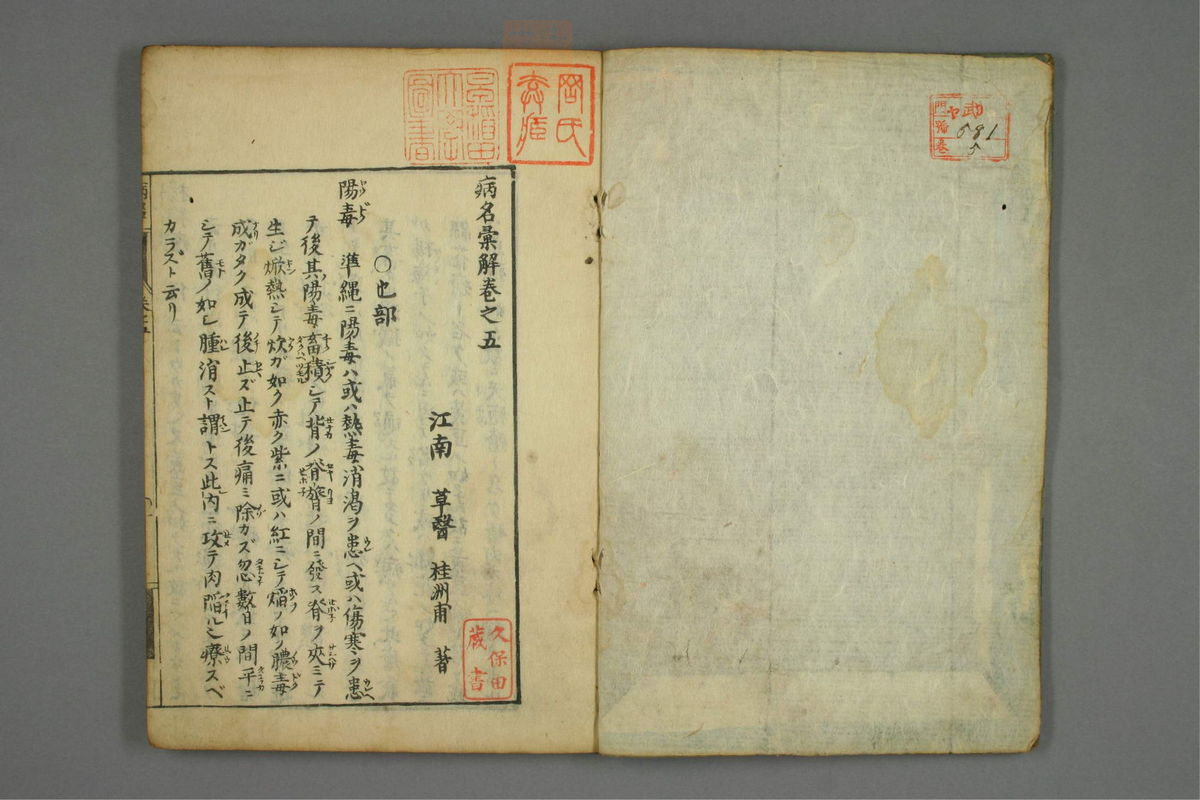 病名彙解巻之五
江南 草醫 桂洲甫 著
○也部
陽毒 準縄ニ陽毒ハ或ハ熱毒消渇ヲ患ヘ或ハ傷寒ヲ患
テ後其陽毒畜積シテ背ノ脊膂ノ間ニ發ス脊ヲ夾ミテ
生ジ焮熱シテ炊ガ如ク赤ク紫ニ或ハ紅ニシテ焰ノ如ク膿毒
成ガタク成テ後止ズ止テ後痛ミ除カズ忽數日ノ間平ニ
シテ舊ノ如シ腫消スト謂トス此内ニ攻テ肉陷ル也療スベ
カラズト云リ
久保田
蔵書
門
番
巻
681
5